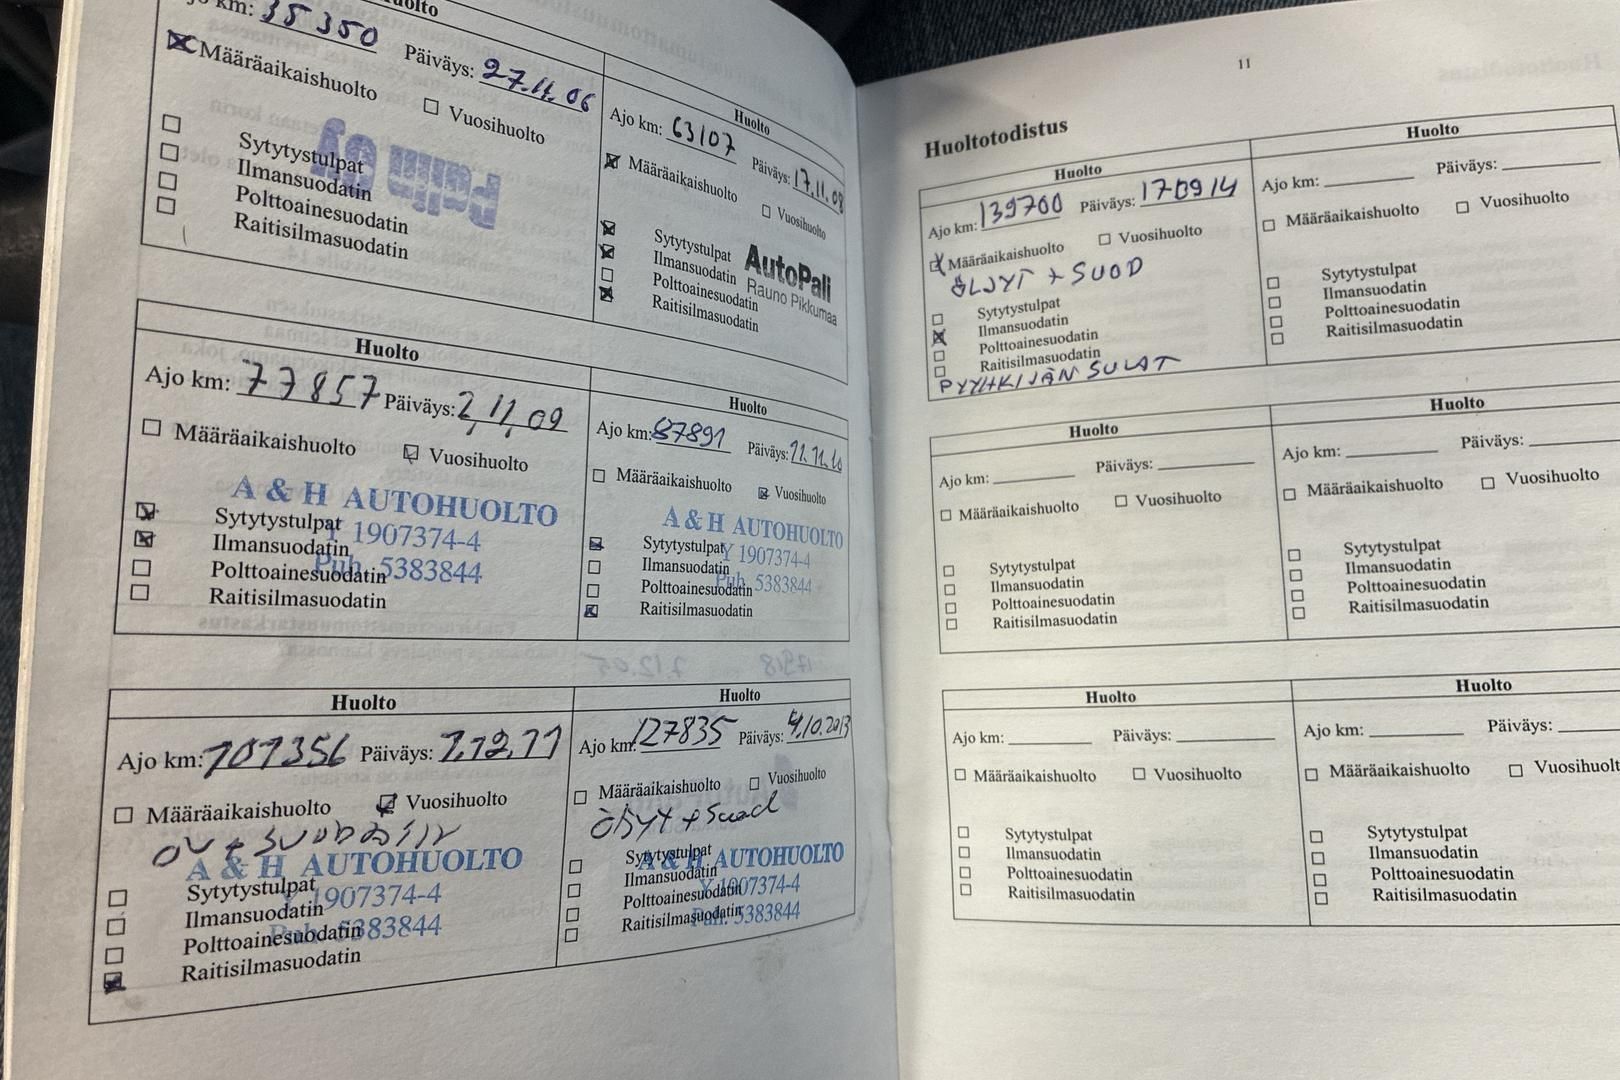 Huolto
Ajo km: 35350 Päiväys: 27.11.06
Määräaikaishuolto Vuosihuolto
Sytytystulpat
Ilmansuodatin
Polttoainesuodatin
Raitisilmasuodatin
Huolto
Ajo km: 63107 Päiväys: 17.11.08
Määräaikaishuolto
Vuosihuolto
Sytytystulpat
Ilmansuodatin
Polttoainesuodatin
Raitisilmasuodatin
AutoPali
Rauno Pikkumaa
Huolto
Ajo km: 77857 Päiväys: 2,11,09
Määräaikaishuolto Vuosihuolto
A & H AUTOHUOLTO
Y 1907374-4
Puh. 5383844
Sytytystulpat
Ilmansuodatin
Polttoainesuodatin
Raitisilmasuodatin
Huolto
Ajo km: 87891 Päiväys: 11.11.10
Määräaikaishuolto Vuosihuolto
A & H AUTOHUOLTO
Y 1907374-4
Puh. 5383844
Sytytystulpat
Ilmansuodatin
Polttoainesuodatin
Raitisilmasuodatin
Huolto
Ajo km: 107356 Päiväys: 7.12.11
Määräaikaishuolto Vuosihuolto
A & H AUTOHUOLTO
Y 1907374-4
Puh. 5383844
Sytytystulpat
Ilmansuodatin
Polttoainesuodatin
Raitisilmasuodatin
Huolto
Ajo km: 127835 Päiväys: 4.10.2013
Määräaikaishuolto Vuosihuolto
öljyt + suod
A & H AUTOHUOLTO
Y 1907374-4
Puh. 5383844
Sytytystulpat
Ilmansuodatin
Polttoainesuodatin
Raitisilmasuodatin
11
Huoltotodistus
Huolto
Ajo km: 139700 Päiväys: 170914
Määräaikaishuolto Vuosihuolto
ÖLJYT + SUOD
Sytytystulpat
Ilmansuodatin
Polttoainesuodatin
Raitisilmasuodatin
PYYHKIJÄN SULAT
Huolto
Ajo km: Päiväys:
Määräaikaishuolto Vuosihuolto
Sytytystulpat
Ilmansuodatin
Polttoainesuodatin
Raitisilmasuodatin
Huolto
Ajo km: Päiväys:
Määräaikaishuolto Vuosihuolto
Sytytystulpat
Ilmansuodatin
Polttoainesuodatin
Raitisilmasuodatin
Huolto
Ajo km: Päiväys:
Määräaikaishuolto Vuosihuolto
Sytytystulpat
Ilmansuodatin
Polttoainesuodatin
Raitisilmasuodatin
Huolto
Ajo km: Päiväys:
Määräaikaishuolto Vuosihuolto
Sytytystulpat
Ilmansuodatin
Polttoainesuodatin
Raitisilmasuodatin
Huolto
Ajo km: Päiväys:
Määräaikaishuolto Vuosihuolt
Sytytystulpat
Ilmansuodatin
Polttoainesuodatin
Raitisilmasuodatin